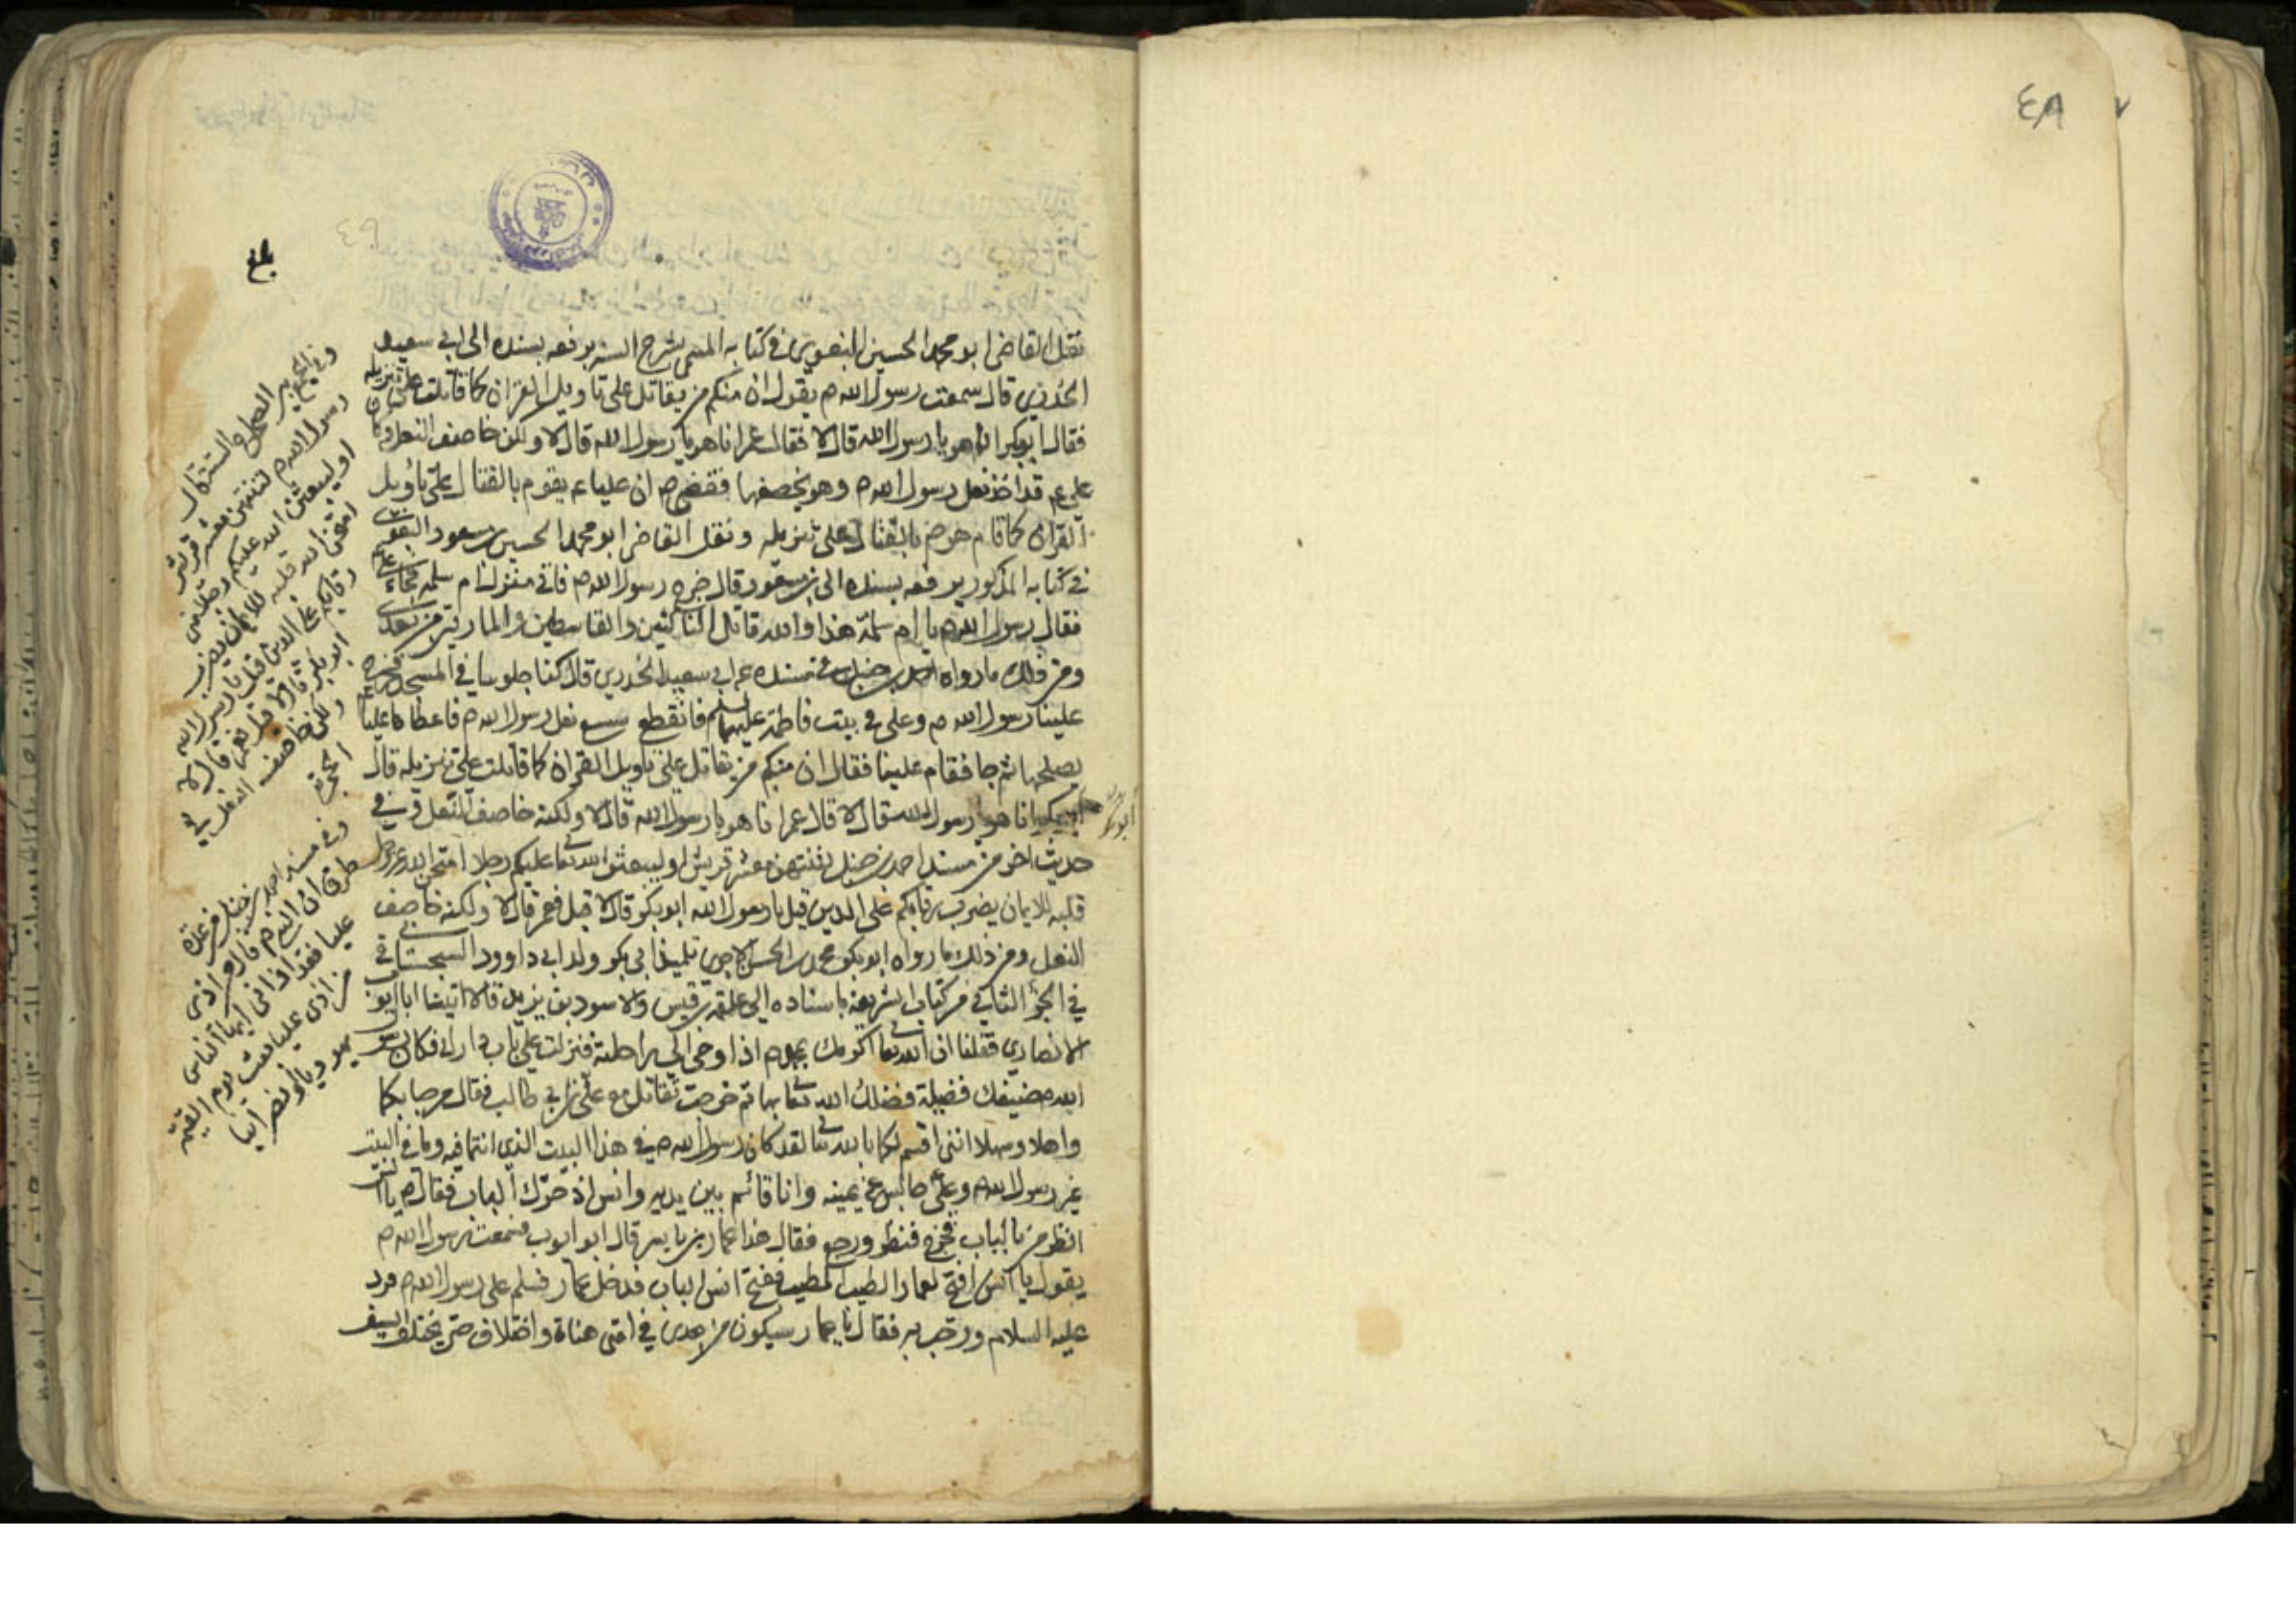 ٤٨
٤٩
بلغ
نقل القاضى ابو محمد الحسين البغوى فى كتابه المسمى بشرح السنه يرفعه بسنده الى ابى سعيد
الخدرى قال سمعت رسول الله ص يقول ان منكم من يقاتل على تاويل القران كما قاتلت على تنزيله
فقال ابوبكر انا هو يا رسول الله قال لا فقال عمر انا هو يا رسول الله قال لا ولكن خاصف النعل وكان
على ع قد اخذ نعل رسول الله ص وهو يخصفها فقضى ص ان عليا ع يقوم بالقتال على تأويل
القران كما قام هو ص بالقتال على تنزيله ونقل القاضى ابو محمد الحسين بن مسعود البغوى
فى كتابه المذكور يرفعه بسنده الى بن مسعود قال خرج رسول الله ص فاتى منزل ام سلمه فجاء على ع
فقال رسول الله ص يا ام سلمة هذا والله قاتل الناكثين والقاسطين والمارقين من بعدى
ومن ذلك ما رواه احمد بن حنبل فى مسنده عن ابى سعيد الخدرى قال كنا جلوسا فى المسجد فخرج
علينا رسول الله ص وعلى فى بيت فاطمة عليهما السلم فانقطع شسع نعل رسول الله ص فاعطاها عليا
يصلحها ثم جا فقام علينا فقال ان منكم من يقاتل على تاويل القران كما قاتلت على تنزيله قال
ابوبكر انا هو يا رسول الله قال لا قال عمر انا هو يا رسول الله قال لا ولكنه خاصف النعل وفى
حديث اخر من مسند احمد بن حنبل لتنتهن معشر قريش او ليبعثن الله تعالى عليكم رجلا امتحن الله عز وجل
قلبه للايمان يضرب رقابكم على الدين قيل يا رسول الله ابوبكر قال لا قيل فعمر قال لا ولكنه خاصف
النعل ومن ذلك ما رواه ابوبكر محمد بن الحسين الاجرى تلميذ ابى بكر ولد ابى داوود السجستانى
فى الجزؤ الثانى من كتاب الشريعة باسناده الى علقمة بن قيس والاسود بن يزيد قالا اتينا ابا ايوب
الانصارى فقلنا ان الله تعالى اكرمك بمحمد ص اذ اوحى الى راحلته فنزلت على باب دارك فكان رسول
الله ص ضيفك فضيلة فضلك الله تعالى بها ثم خرجت تقاتل مع على بن ابى طالب فقال مرحبا بكما
واهلا وسهلا اننى اقسم لكما بالله تعالى لقد كان رسول الله ص فى هذا البيت الذى انتما فيه وما فى البيت
غير رسول الله ص وعلى جالس عن يمينه وانا قائم بين يديه وانس اذ حرك الباب فقال ص يا انس
انظر من بالباب فخرج فنظر ورجع فقال هذا عمار بن ياسر قال ابو ايوب فسمعت رسول الله ص
يقول يا انس افتح لعمار الطيب المطيب ففتح انس الباب فدخل عمار فسلم على رسول الله ص فرد
عليه السلام ورحب به فقال يا عمار سيكون من بعدى فى امتى هناة واختلاف حتى يختلف السيف
ابوبكر
وفى الجمع بين الصحاح الستة قال
رسول الله ص لتنتهن معشر قريش
او ليبعثن الله عليكم رجلا منى
امتحن الله قلبه للايمان يضرب
رقابكم على الدين قيل يا رسول الله
ابوبكر قال لا قيل عمر قال لا
ولكن خاصف النعل فى
الحجرة
وفى مسند احمد بن حنبل من عدة
طرق ان النبى ص قال من اذى
عليا فقد اذانى ايها الناس
من اذى عليا بعث يوم القيمة
يهوديا او نصرانيا